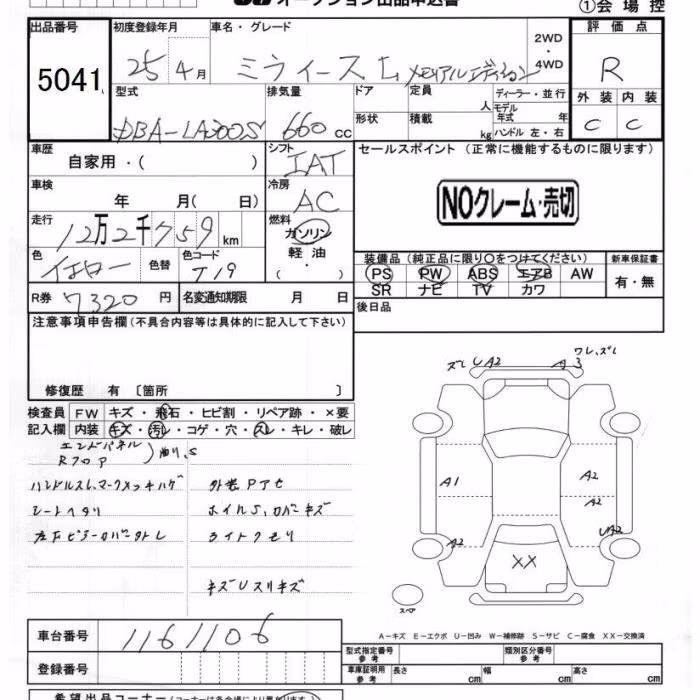 オークション出品申込書
①会場控
出品番号 初度登録年月 車名・グレード 2WD・4WD 評価点
5041 25年4月 ミライース L メモリアルエディション R
型式 排気量 ドア 定員 人 ディーラー・並行 外装 内装
DBA-LA300S 660cc 形状 積載 kg モデル年式 年 ハンドル 左・右 C C
車歴 自家用・( ) シフト IAT セールスポイント (正常に機能するものに限ります)
車検 年 月( 日) 冷房 AC NOクレーム・売切
走行 12万2千759km 燃料 ガソリン 軽油・( )
色 イエロー 色替 色コード T19 装備品(純正品に限り○をつけてください) 新車保証書
PS PW ABS エアB AW 有・無
SR ナビ TV カワ
R券 7320円 名変通知期限 月 日 後日品
注意事項申告欄(不具合内容等は具体的に記入して下さい)
修復歴 有〔箇所 〕
ズレ UA2 A3 ワレ、ズレ
検査員 FW キズ・飛石・ヒビ割・リペア跡・×要
記入欄 内装 キズ・汚レ・コゲ・穴・スレ・キレ・破レ
エンドパネル
Rフロア 曲り、S
ハンドルスレ、マークメッキハゲ 外装Pアセ
シートヘタリ ホイルS、カバーキズ
左下ピラーカバートレ ライトクモリ
キズUスリキズ
A1 A2
A2
A2 UA2
XX
スペア
A-キズ E-エクボ U-凹み W-補修跡 S-サビ C-腐食 XX-交換済
車台番号 1161106
型式指定番号 参考 類別区分番号 参考
登録番号 車庫証明用 参考 長さ cm 幅 cm 高さ cm
希望出品コーナー